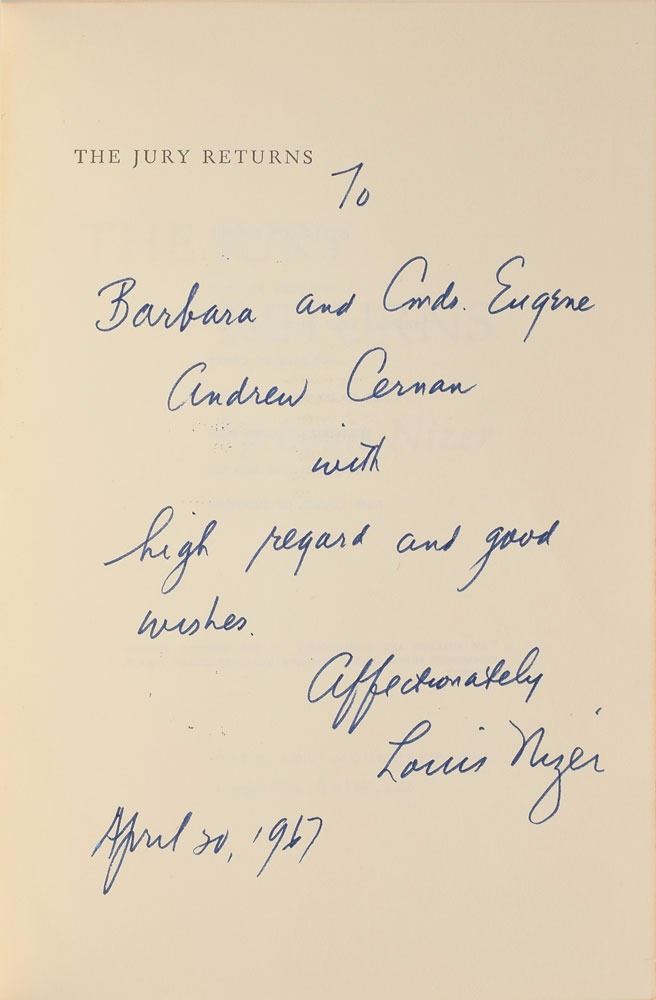 THE JURY RETURNS
To
Barbara and Cmdr. Eugene
Andrew Cernan
with
high regard and good
wishes.
Affectionately
Louis Nizer
April 20, 1967